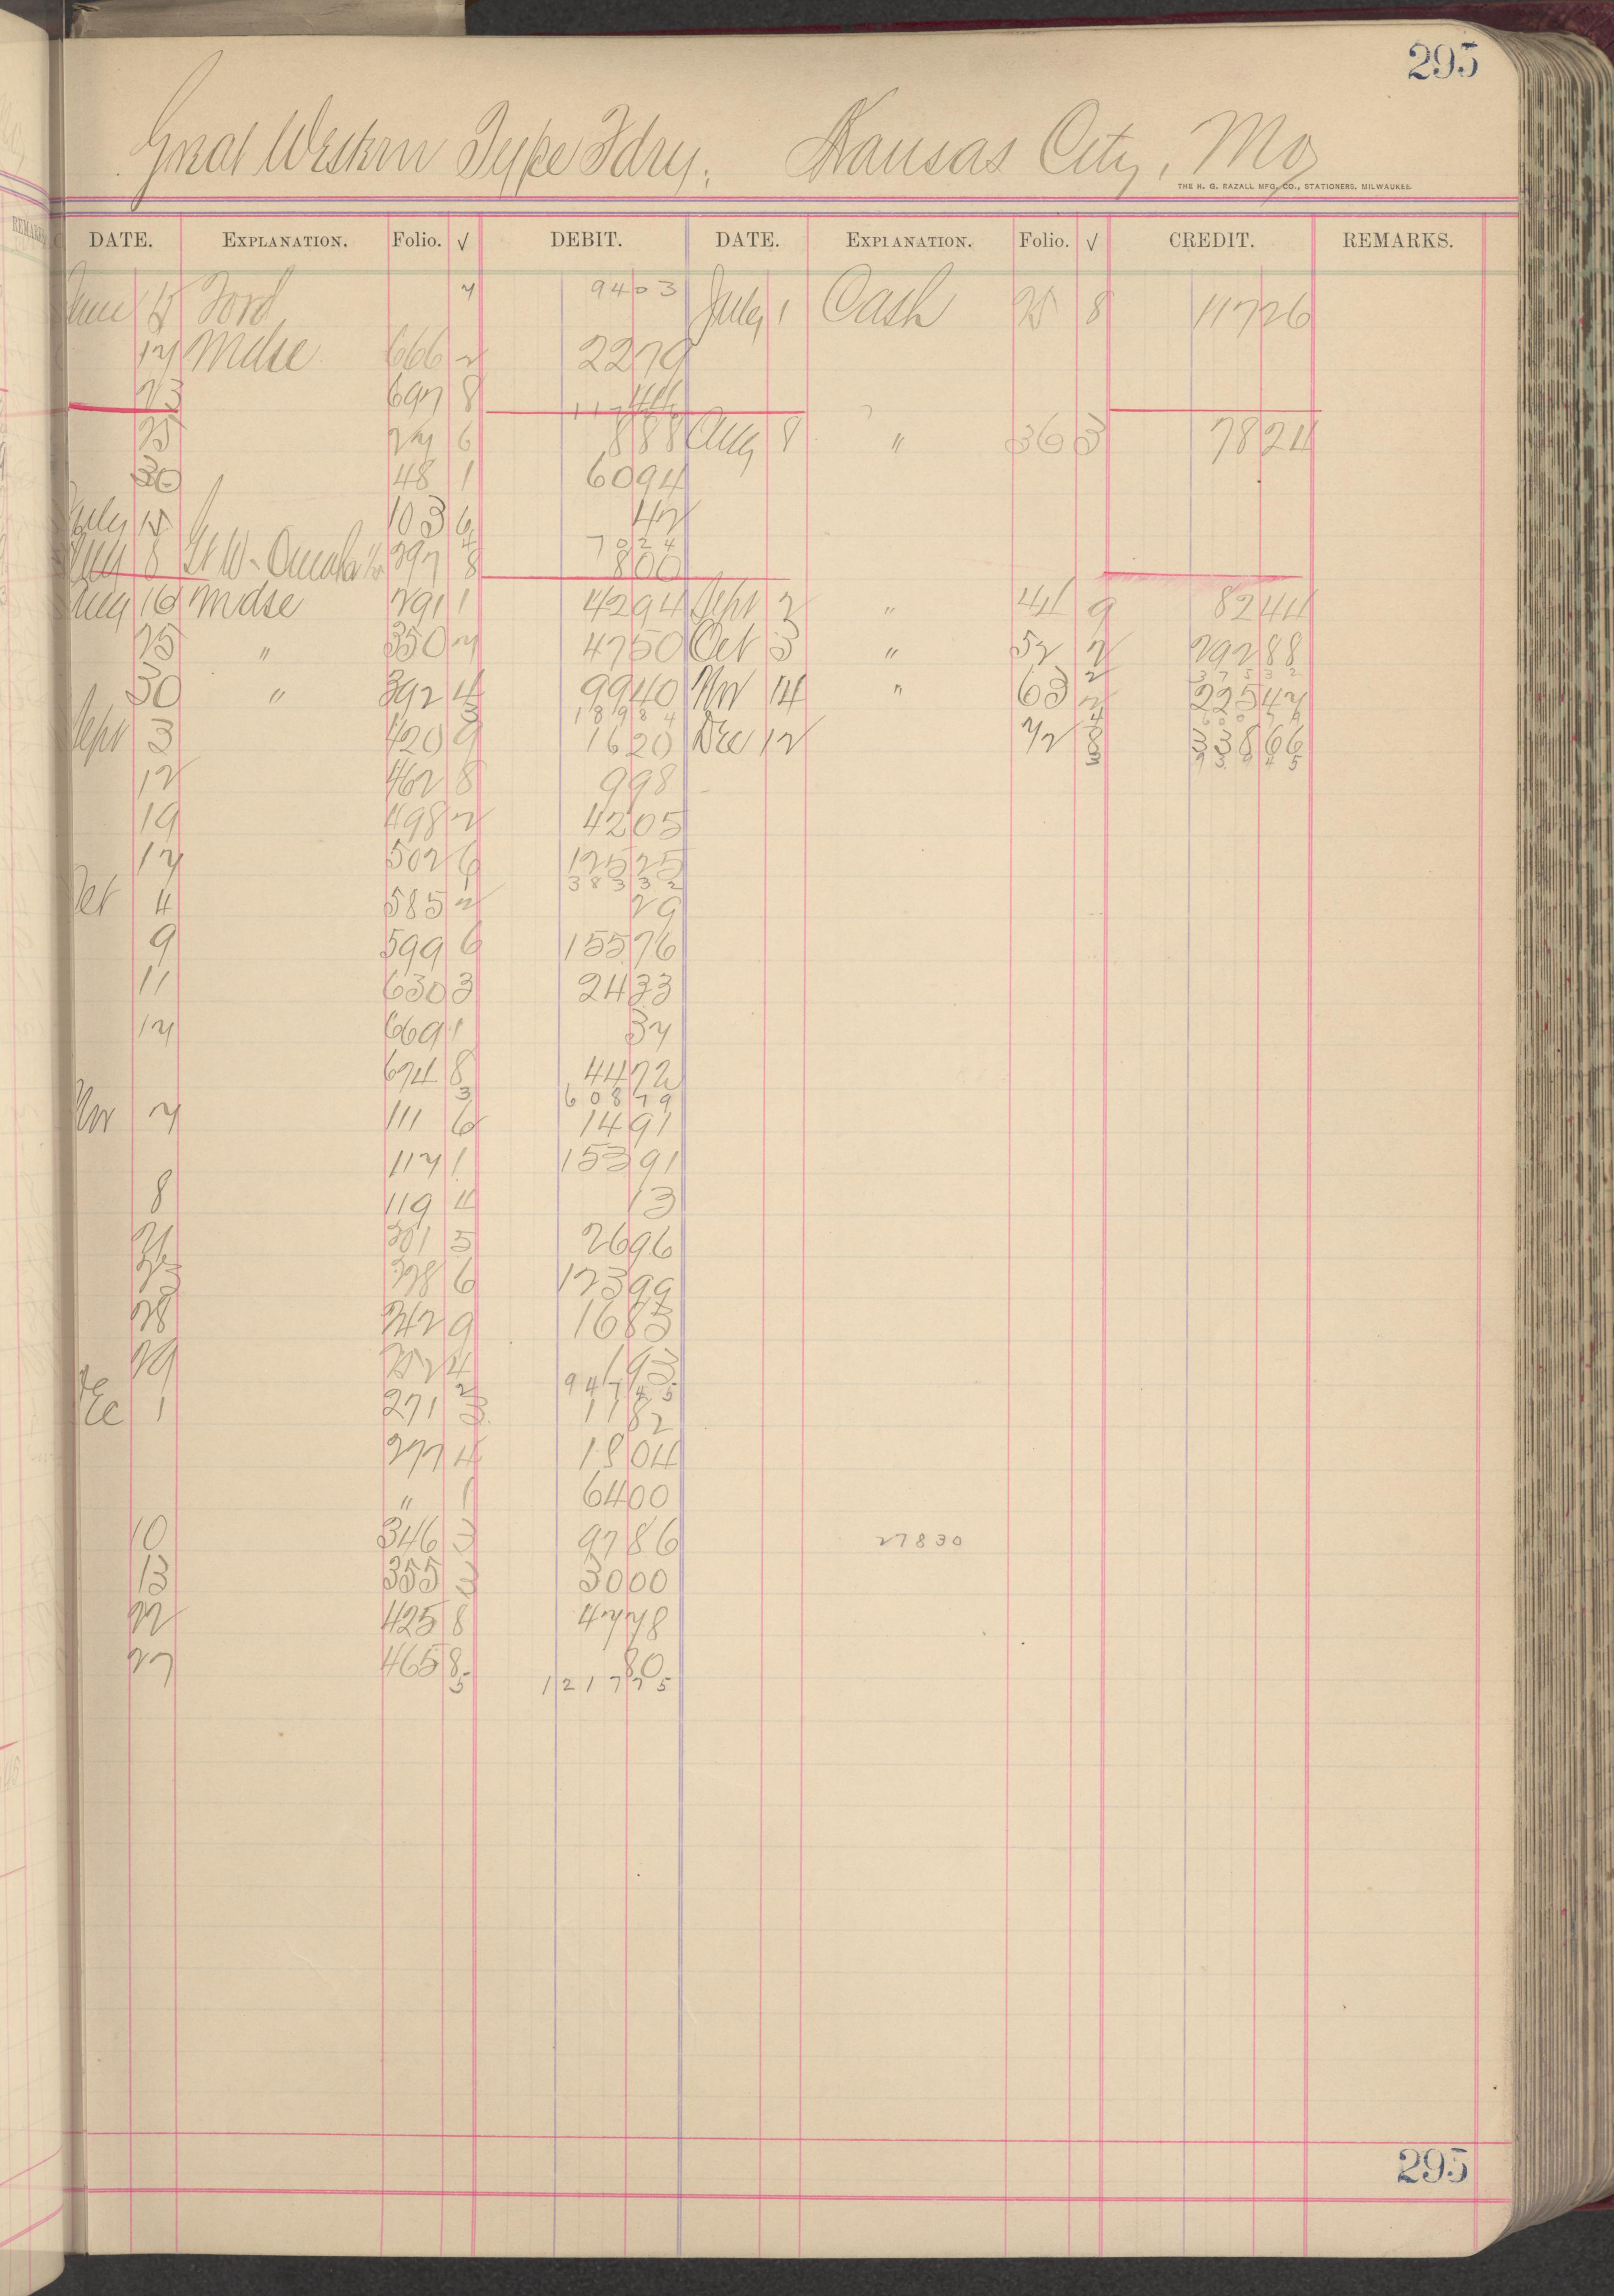 295
Great Western Type Fdry. Kansas City, Mo
THE H. G. RAZALL MFG. CO., STATIONERS, MILWAUKEE.
DATE. EXPLANATION. Folio. √ DEBIT. DATE. EXPLANATION. Folio. √ CREDIT. REMARKS.
June 15 Ford 7 9403 July 1 Cash 25 8 11726
17 Mdse 666 2 2279
23 697 8 44
117 26
25 27 6 888 Aug 8 " 36 3 7824
30 48 1 6094
July 15 103 6 42
7024
Aug 8 Gt W - Omaha 297 8 800
Aug 16 Mdse 291 1 4294 Sept 2 " 44 9 8244
25 " 350 7 4750 Oct 3 " 52 2 29288
37532
30 " 392 4 9940 Nov 14 " 63 2 22547
18984
60079
Sept 3 420 9 1620 Dec 12 72 8 33866
93945
12 462 8 998
19 498 2 4205
17 502 6 12525
38332
Oct 4 585 2 29
9 599 6 15576
11 630 3 2433
17 669 1 37
674 8 4472
60879
Nov 7 111 6 1491
117 1 15391
8 119 4 13
201 5 2696
228 6 12399
28 242 9 1683
29 252 4 193
94745
Dec 1 271 3 1182
277 4 1804
" 1 6400
10 346 3 9786 27830
13 355 3 3000
22 425 8 4778
27 465 8 80
5 121775
295